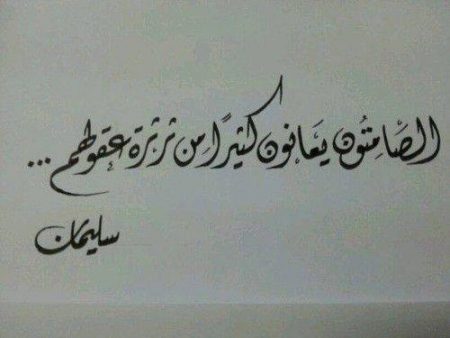 الصَّامِتُون يَعَانون كثيرًا مِن ثرثرة عقولهم ...
سليمان